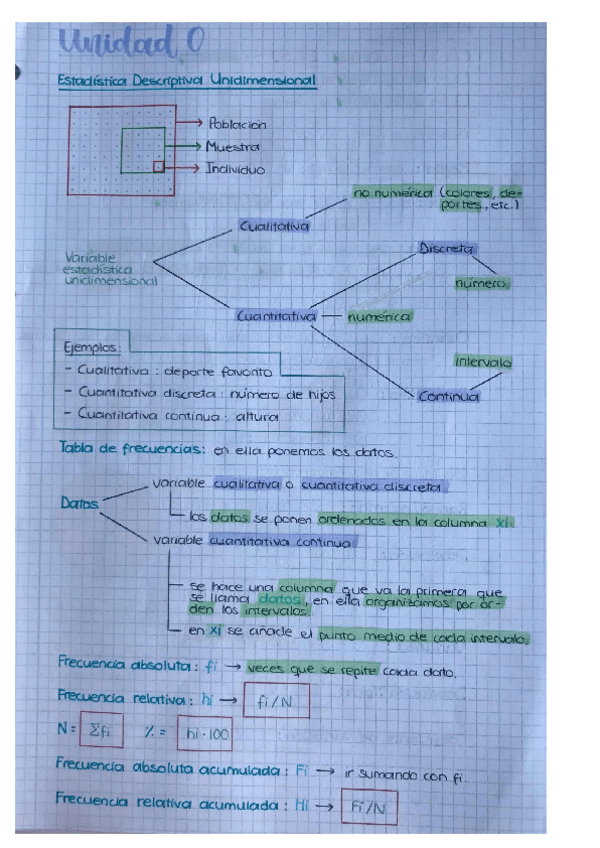 Unidad 0
Estadística Descriptiva Unidimensional
Población
Muestra
Individuo
no numérica (colores, de-
portes, etc.)
Cualitativa
Discreta
Variable
estadística
unidimensional
número
Cuantitativa
numérica
intervalo
Continua
Ejemplos:
- Cualitativa : deporte favorito
- Cuantitativa discreta : número de hijos
- Cuantitativa continua : altura
Tabla de frecuencias: en ella ponemos los datos.
variable cualitativa o cuantitativa discreta
Datos
los datos se ponen ordenados en la columna xi.
variable cuantitativa continua
se hace una columna que va la primera que
se llama datos, en ella organizamos por or-
den los intervalos.
en xi se añade el punto medio de cada intervalo.
Frecuencia absoluta: fi → veces que se repite cada dato.
Frecuencia relativa: hi → fi/N
N = Σfi % = hi·100
Frecuencia absoluta acumulada: Fi → ir sumando con fi.
Frecuencia relativa acumulada: Hi → Fi/N